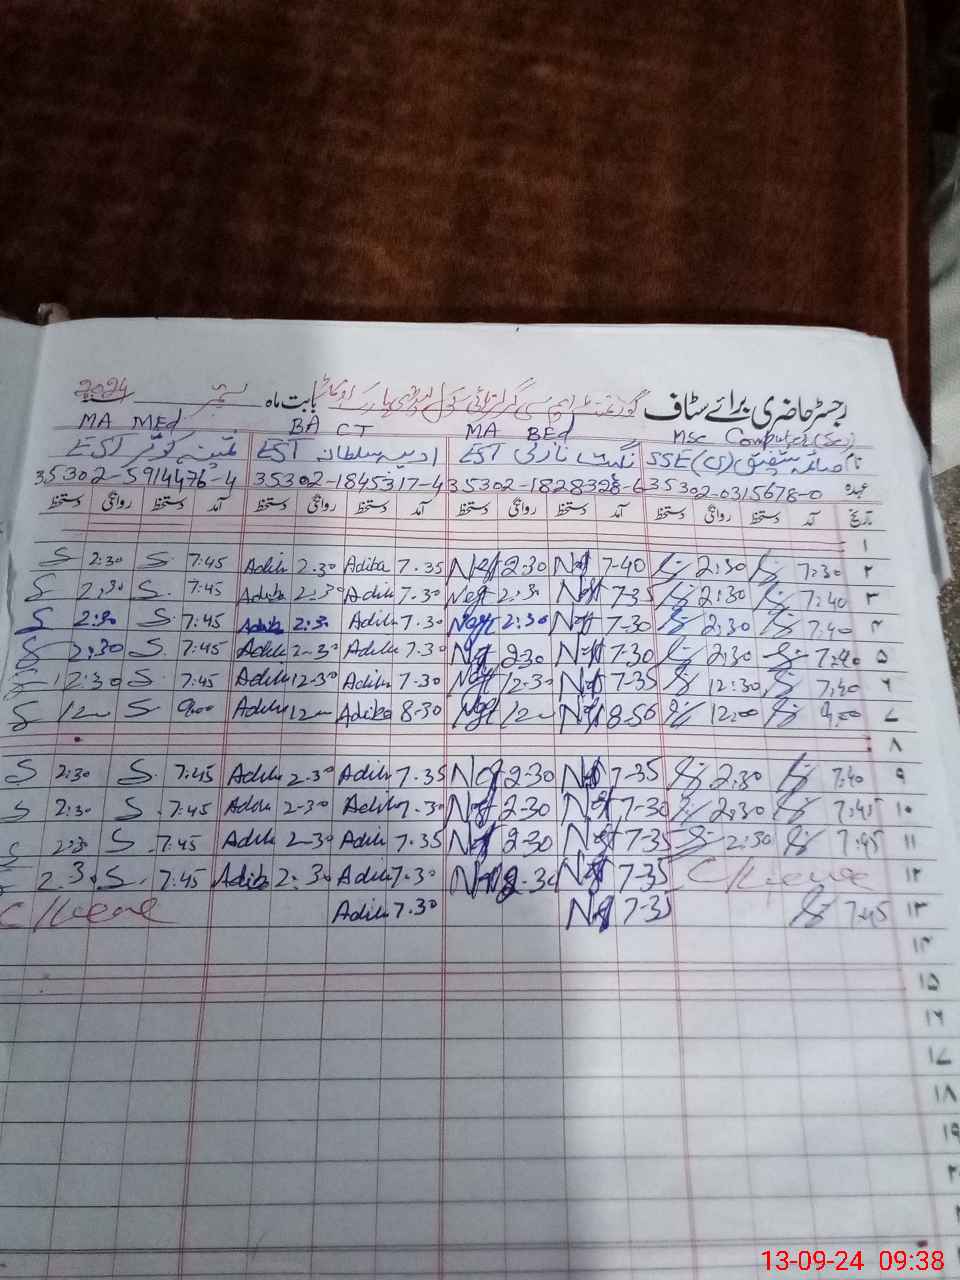 رجسٹر حاضری برائے سٹاف گورنمنٹ گرلز ہائی سکول بابت ماہ ستمبر 2024
MSc Computer (Sc) MA BEd BA CT MA MEd
نام صائمہ شفیق SSE (CS) نگہت نازلی EST ادیبہ سلطانہ EST کوثر EST
عہدہ 35302-0315678-0 35302-1828328-6 35302-1845317-4 35302-5914476-4
تاریخ آمد دستخط روانگی دستخط آمد دستخط روانگی دستخط آمد دستخط روانگی دستخط آمد دستخط روانگی دستخط
۱
۲ 7:30 2:30 7-40 2-30 7.35 Adiba 2.30 Adiba 7:45 S 2:30 S
۳ 7:40 2:30 7-35 2:30 7.30 Adiba 2:30 Adiba 7:45 S 2:30 S
۴ 7:40 2:30 7-30 2:30 7.30 Adiba 2:30 Adiba 7:45 S 2:30 S
۵ 7:40 2:30 7-30 2:30 7.30 Adiba 2-30 Adiba 7:45 S 2:30 S
۶ 7:40 12:30 7-35 12-30 7.30 Adiba 12-30 Adiba 7:45 S 12:30 S
۷ 9:00 12:00 8-50 12 8-30 Adiba 12 Adiba 9:00 S 12 S
۸
۹ 7:40 2:30 7-35 2-30 7.35 Adiba 2.30 Adiba 7:45 S 2:30 S
۱۰ 7:45 2:30 7-30 2-30 7.30 Adiba 2-30 Adiba 7:45 S 2:30 S
۱۱ 7:45 2:30 7-35 2-30 7.35 Adiba 2-30 Adiba 7:45 S 2:30 S
۱۲ C/Leave 7-35 2-30 7.30 Adiba 2:30 Adiba 7:45 S 2:30 S
۱۳ 7:45 7-35 7.30 Adiba C/Leave
۱۴
۱۵
۱۶
۱۷
۱۸
۱۹
13-09-24 09:38